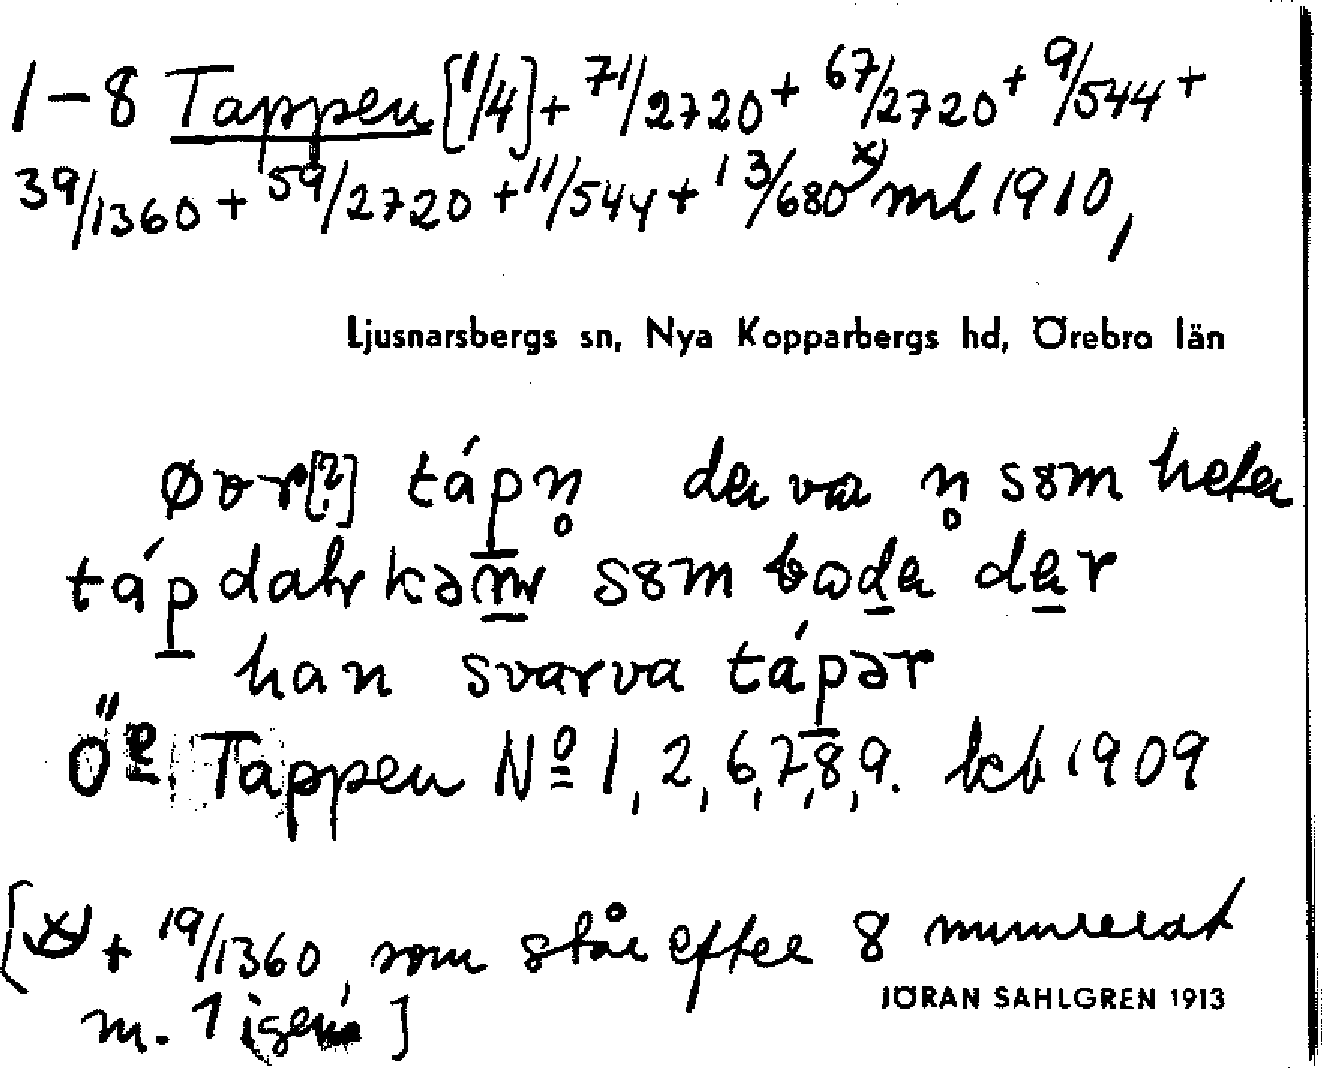 1-8 Tappen [1/4] + 71/2720 + 67/2720 + 9/544 +
39/1360 + 59/2720 + 11/544 + 13/680 x) ml 1910,
Ljusnarsbergs sn, Nya Kopparbergs hd, Örebro län
[?] tápn̥ va n̥ søm
táp søm
han svarva tápər
Tappen No 1, 2, 6, 7, 8, 9. kcb 1909
[x) + 19/1360, som står efter 8 numrerat
m. 1 igen]
JÖRAN SAHLGREN 1913